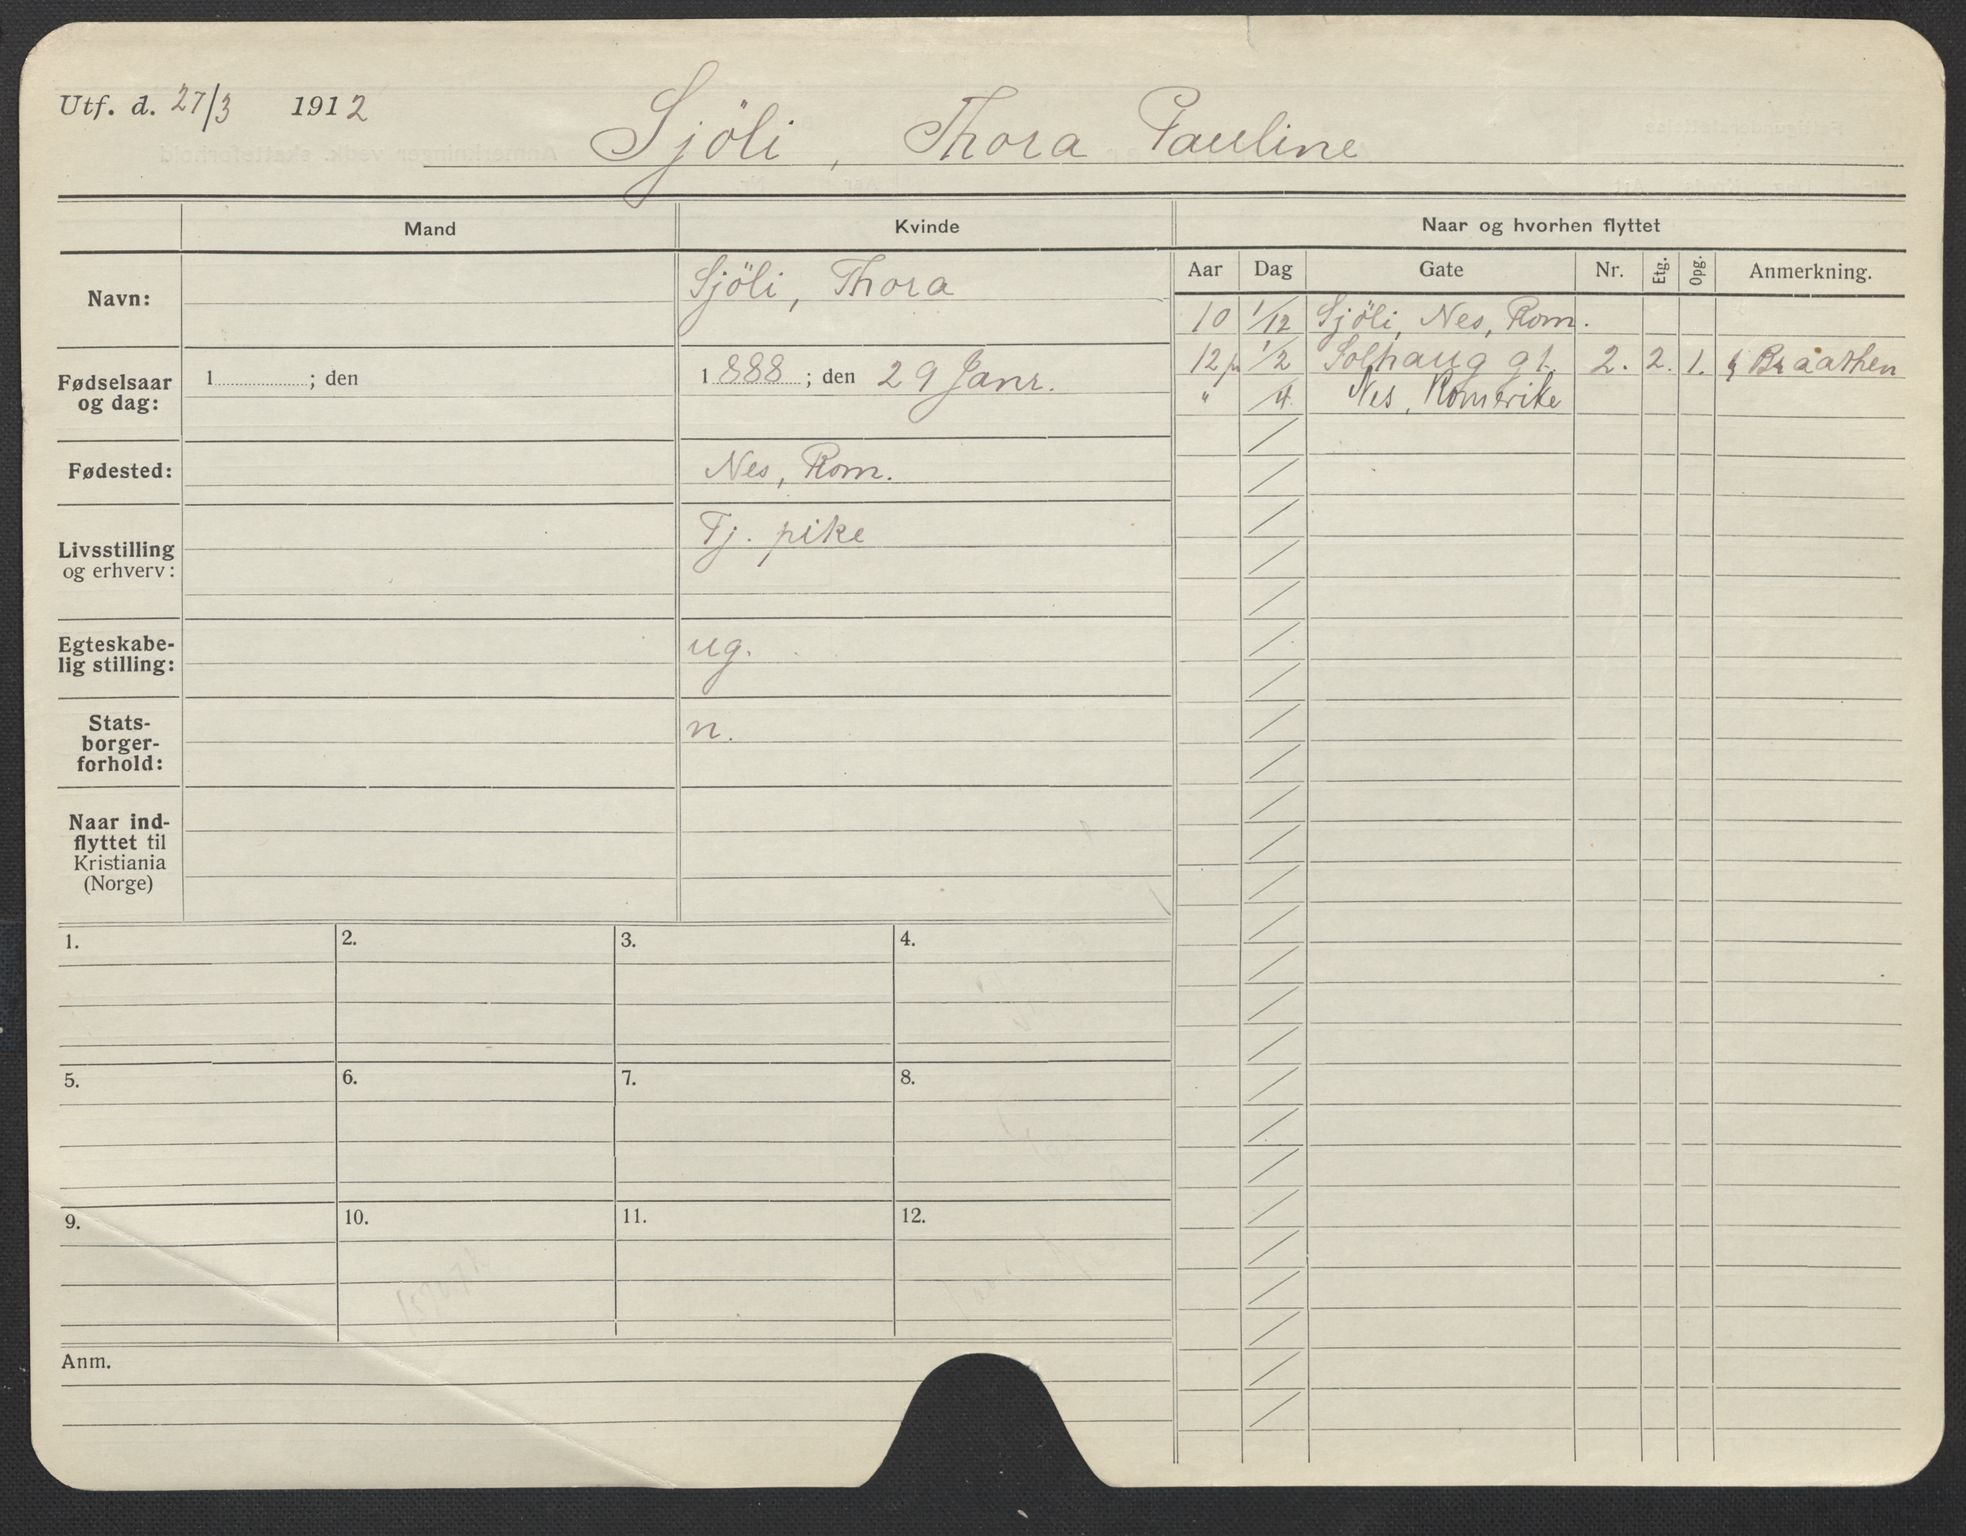 Utf. d. 27/3 1912
Sjöli, Thora Pauline
Mand
Kvinde
Naar og hvorhen flyttet
Aar Dag Gate Nr. Etg. Opg. Anmerkning.
Navn: Sjöli, Thora
10 1/12 Sjöli, Nes, Rom.
12 1/2 Solhaug gt. 2. 2. 1. Braathen
" /4 Nes, Romerike
Fødselsaar
og dag:
1 ; den
1888 ; den 29 Janr.
Fødested: Nes, Rom.
Livsstilling
og erhverv:
Tj. pike
Egteskabe-
lig stilling:
ug.
Stats-
borger-
forhold:
n.
Naar ind-
flyttet til
Kristiania
(Norge)
1. 2. 3. 4.
5. 6. 7. 8.
9. 10. 11. 12.
Anm.